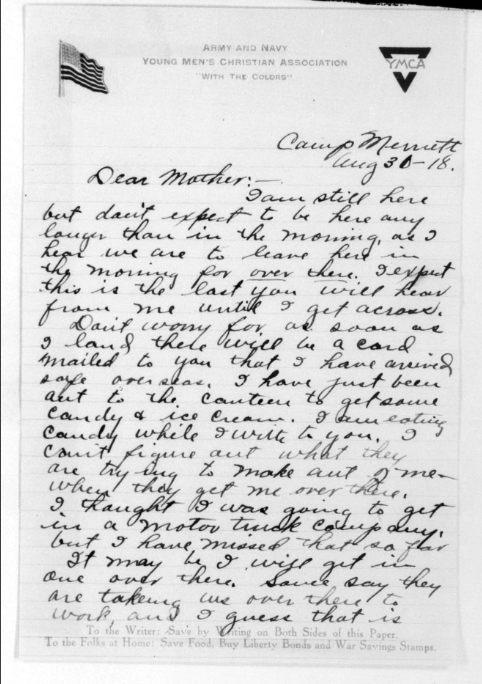 ARMY AND NAVY
YOUNG MEN'S CHRISTIAN ASSOCIATION
"WITH THE COLORS"
YMCA
Camp Merritt
Aug 30-18.
Dear Mother:-
I am still here
but don't expect to be here any
longer than in the morning, as I
hear we are to leave here in
the morning for over there. I expect
this is the last you will hear
from me until I get across.
Don't worry for as soon as
I land there will be a card
mailed to you that I have arrived
safe overseas. I have just been
out to the canteen to get some
candy & ice cream. I am eating
candy while I write to you. I
can't figure out what they
are trying to make out of me
when they get me over there.
I thought I was going to get
in a motor truck company,
but I have missed that so far
It may be I will get in
one over there. Some say they
are takeing us over there to
work, and I guess that is
To the Writer: Save by Writing on Both Sides of this Paper.
To the Folks at Home: Save Food, Buy Liberty Bonds and War Savings Stamps.